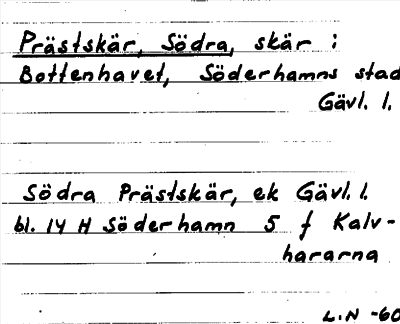 Prästskär, Södra, skär i
Bottenhavet, Söderhamns stad
Gävl. l.
Södra Prästskär, ek Gävl. l.
bl. 14 H Söderhamn 5 f Kalv-
hararna
L.N -60